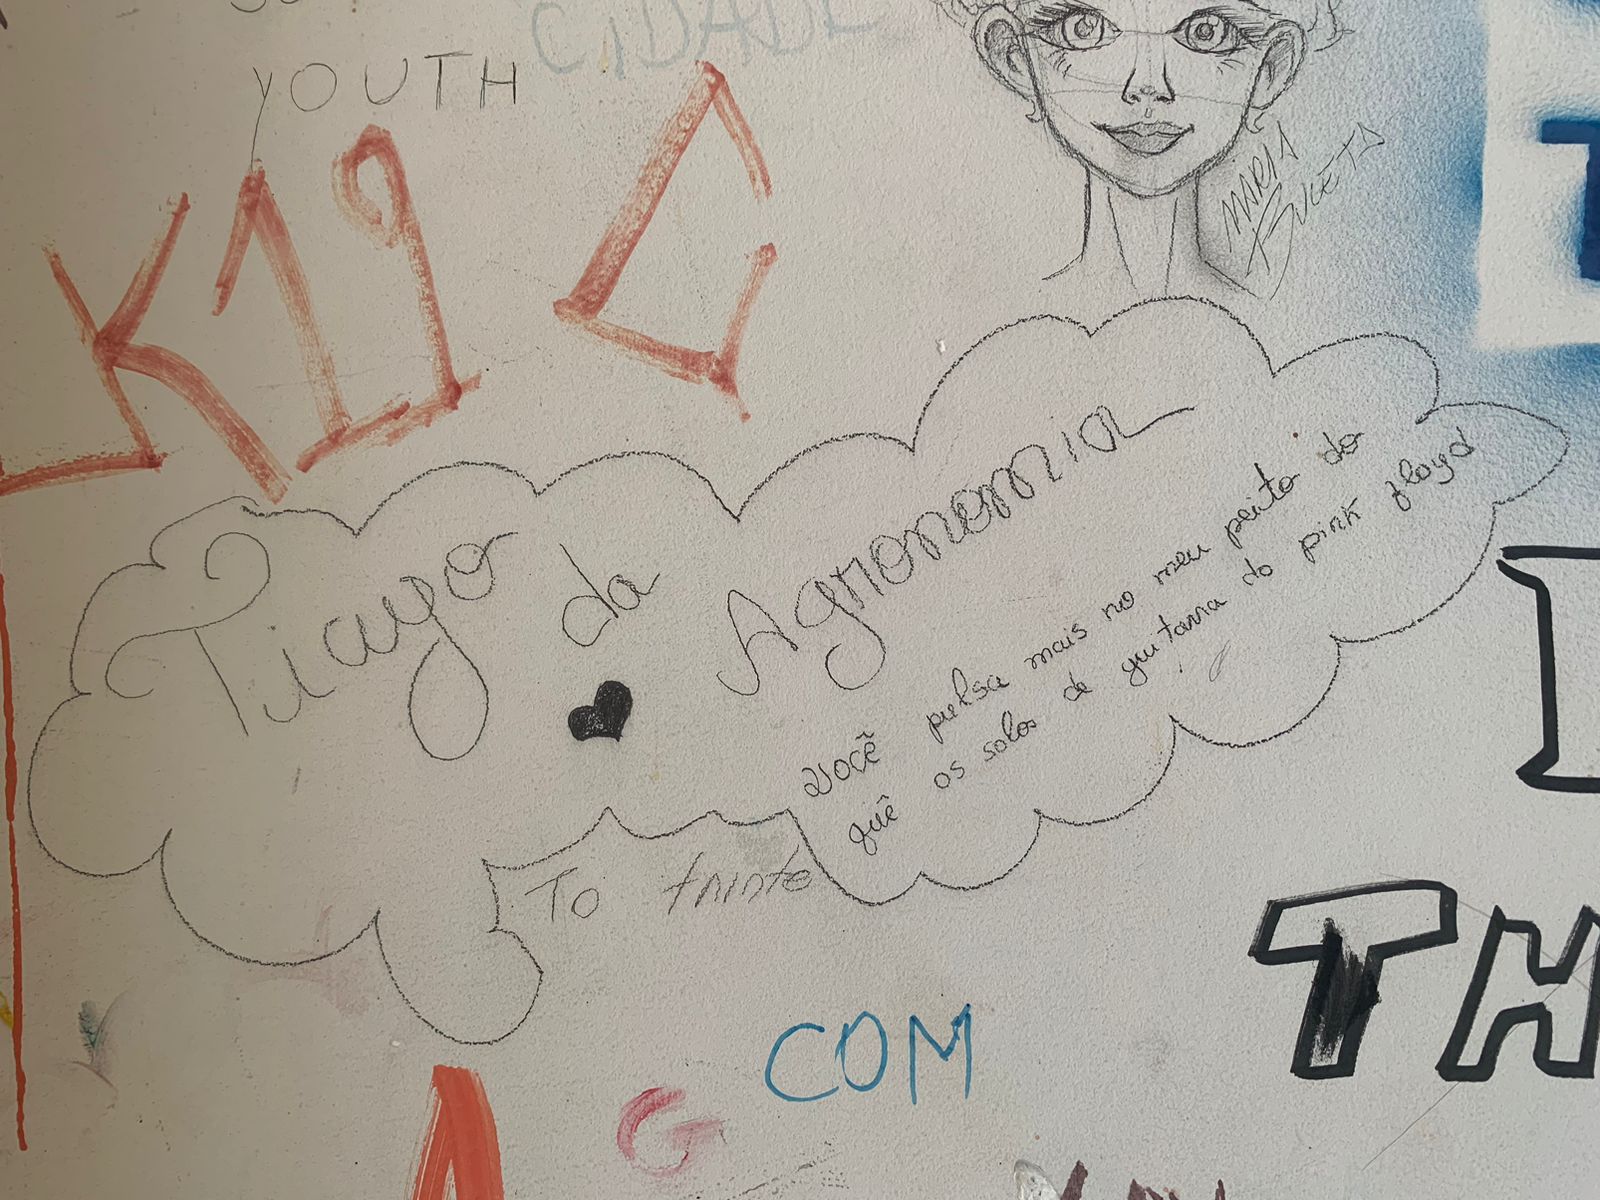 CIDADE
YOUTH
MARIA
BUCETA
K19 C
Tiago da Agronomia
Você pulsa mais no meu peito do
quê os solos de guitarra do pink floyd
To trinte
COM
TH
G